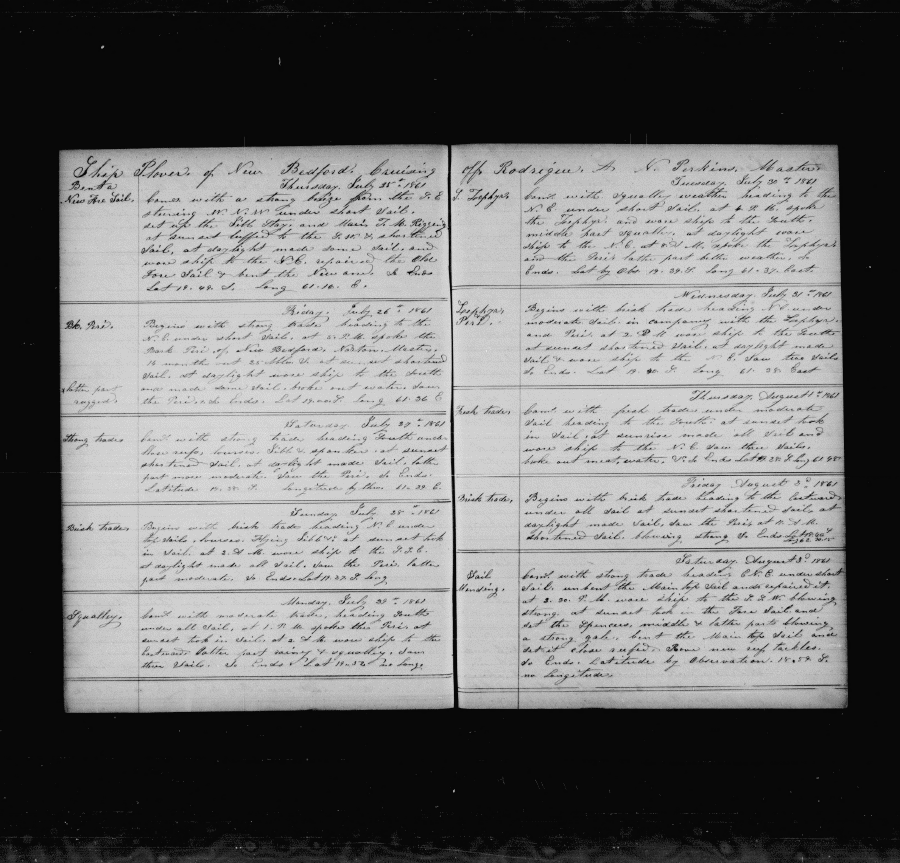 Ship Plover of New Bedford Cruising
Thursday July 25th 1861
Bent a
New Fore Sail.
Comes with a strong breeze from the S.E
steering W.N.W under short Sail.
set up the Jibb Stay, and Main T. M. Rigging
at sunset luffed to the S.W. & shortened
Sail, at daylight made some Sail and
wore ship to the N.E. repaired the Old
Fore Sail & bent the New one. So Ends
Lat 19. 49. S. Long 61. 16. E.
Friday. July 26th 1861
Bk. Peri.
Begins with strong trade heading to the
N.E. under short Sail, at P.M. spoke the
Bark Peri of New Bedford, Master,
18 months out at sunset shortened
Sail. at daylight wore ship to the South
and made some Sail. broke out water. Saw
the Peri. So Ends. Lat 19. S. Long 61. 36 E
latter part
rugged.
Saturday July 27th 1861
Strong trade.
Com. with strong trade heading South under
close reefs, courses. Jibb & spanker. at sunset
shortened Sail. at daylight made Sail. latter
part more moderate. Saw the Peri. So Ends.
Latitude 19. 28. S. Longitude by 61. 39. E.
Sunday. July 28th 1861
Brisk trade.
Begins with brisk trade heading N.E under
top Sails, courses. Flying Jibb &c at sunset took
in Sail. at 2. A. M. wore ship to the S.S.E.
at daylight made all Sail. Saw the Peri. latter
part moderate. So Ends Lat 19. 27. S. Long
Monday. July 29th 1861
Squally.
Com. with moderate trade, heading South
under all Sail, at 1. P. M. spoke the Peri, at
sunset took in Sail. at 2 A M. wore ship to the
Eastward. latter part rainy & squally. Saw
three Sails. So Ends Lat 19. 52. No Long
off Rodrigue. A. N. Perkins. Master
Tuesday July 30th 1861
Com. with squally weather heading to the
N.E under short Sail. at 4 P.M. spoke
the and wore ship to the South.
middle part squally. at daylight wore
ship to the N. E. at 8 A M, spoke the
and the Peri. latter part better weather. So
Ends. Lat by Obs 19. 39. S. Long 61. 37. East.
Wednesday July 31st 1861
Peri.
Begins with brisk trade heading N E under
moderate Sail. in company with the
and Peri. at 2. P. M. wore ship to the South
at sunset shortened Sail. at daylight made
Sail & wore ship to the N. E. Saw two Sails
So Ends. Lat 19. 30. S. Long 61. 28. East
Thursday. August 1st 1861
Fresh trade.
Com. with fresh trade under moderate
Sail heading to the South. at sunset took
in Sail, at sunrise made all Sail and
wore ship to the N. E. Saw three Sails.
broke out meat, water, &c So Ends Lat 19. 28. S. Long 61.
Friday August 2d 1861
Brisk trade.
Begins with brisk trade heading to the Eastward
under all Sail at sunset shortened Sail, at
daylight made Sail. Saw the Peri, at 11. A. M.
shortened Sail. blowing strong So Ends
Saturday. August 3d 1861
Sail
Mending.
Com. with strong trade heading E.N.E under short
Sail. unbent the Main top Sail and repaired it.
at 3. 30. P. M. wore ship to the S. S. W. blowing
strong. at sunset took in the Fore Sail and
set the Spencers. middle & latter parts blowing
a strong gale. bent the Main top Sail and
set it close reefed. Rove new reef tackles.
So Ends. Latitude by Observation. 18. 54. S.
no Longitude.